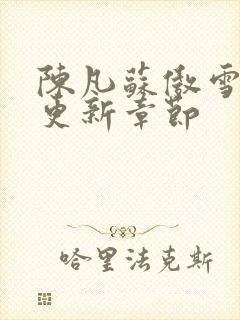 陳凡蘇傲雪
更新章節
哈里法克斯